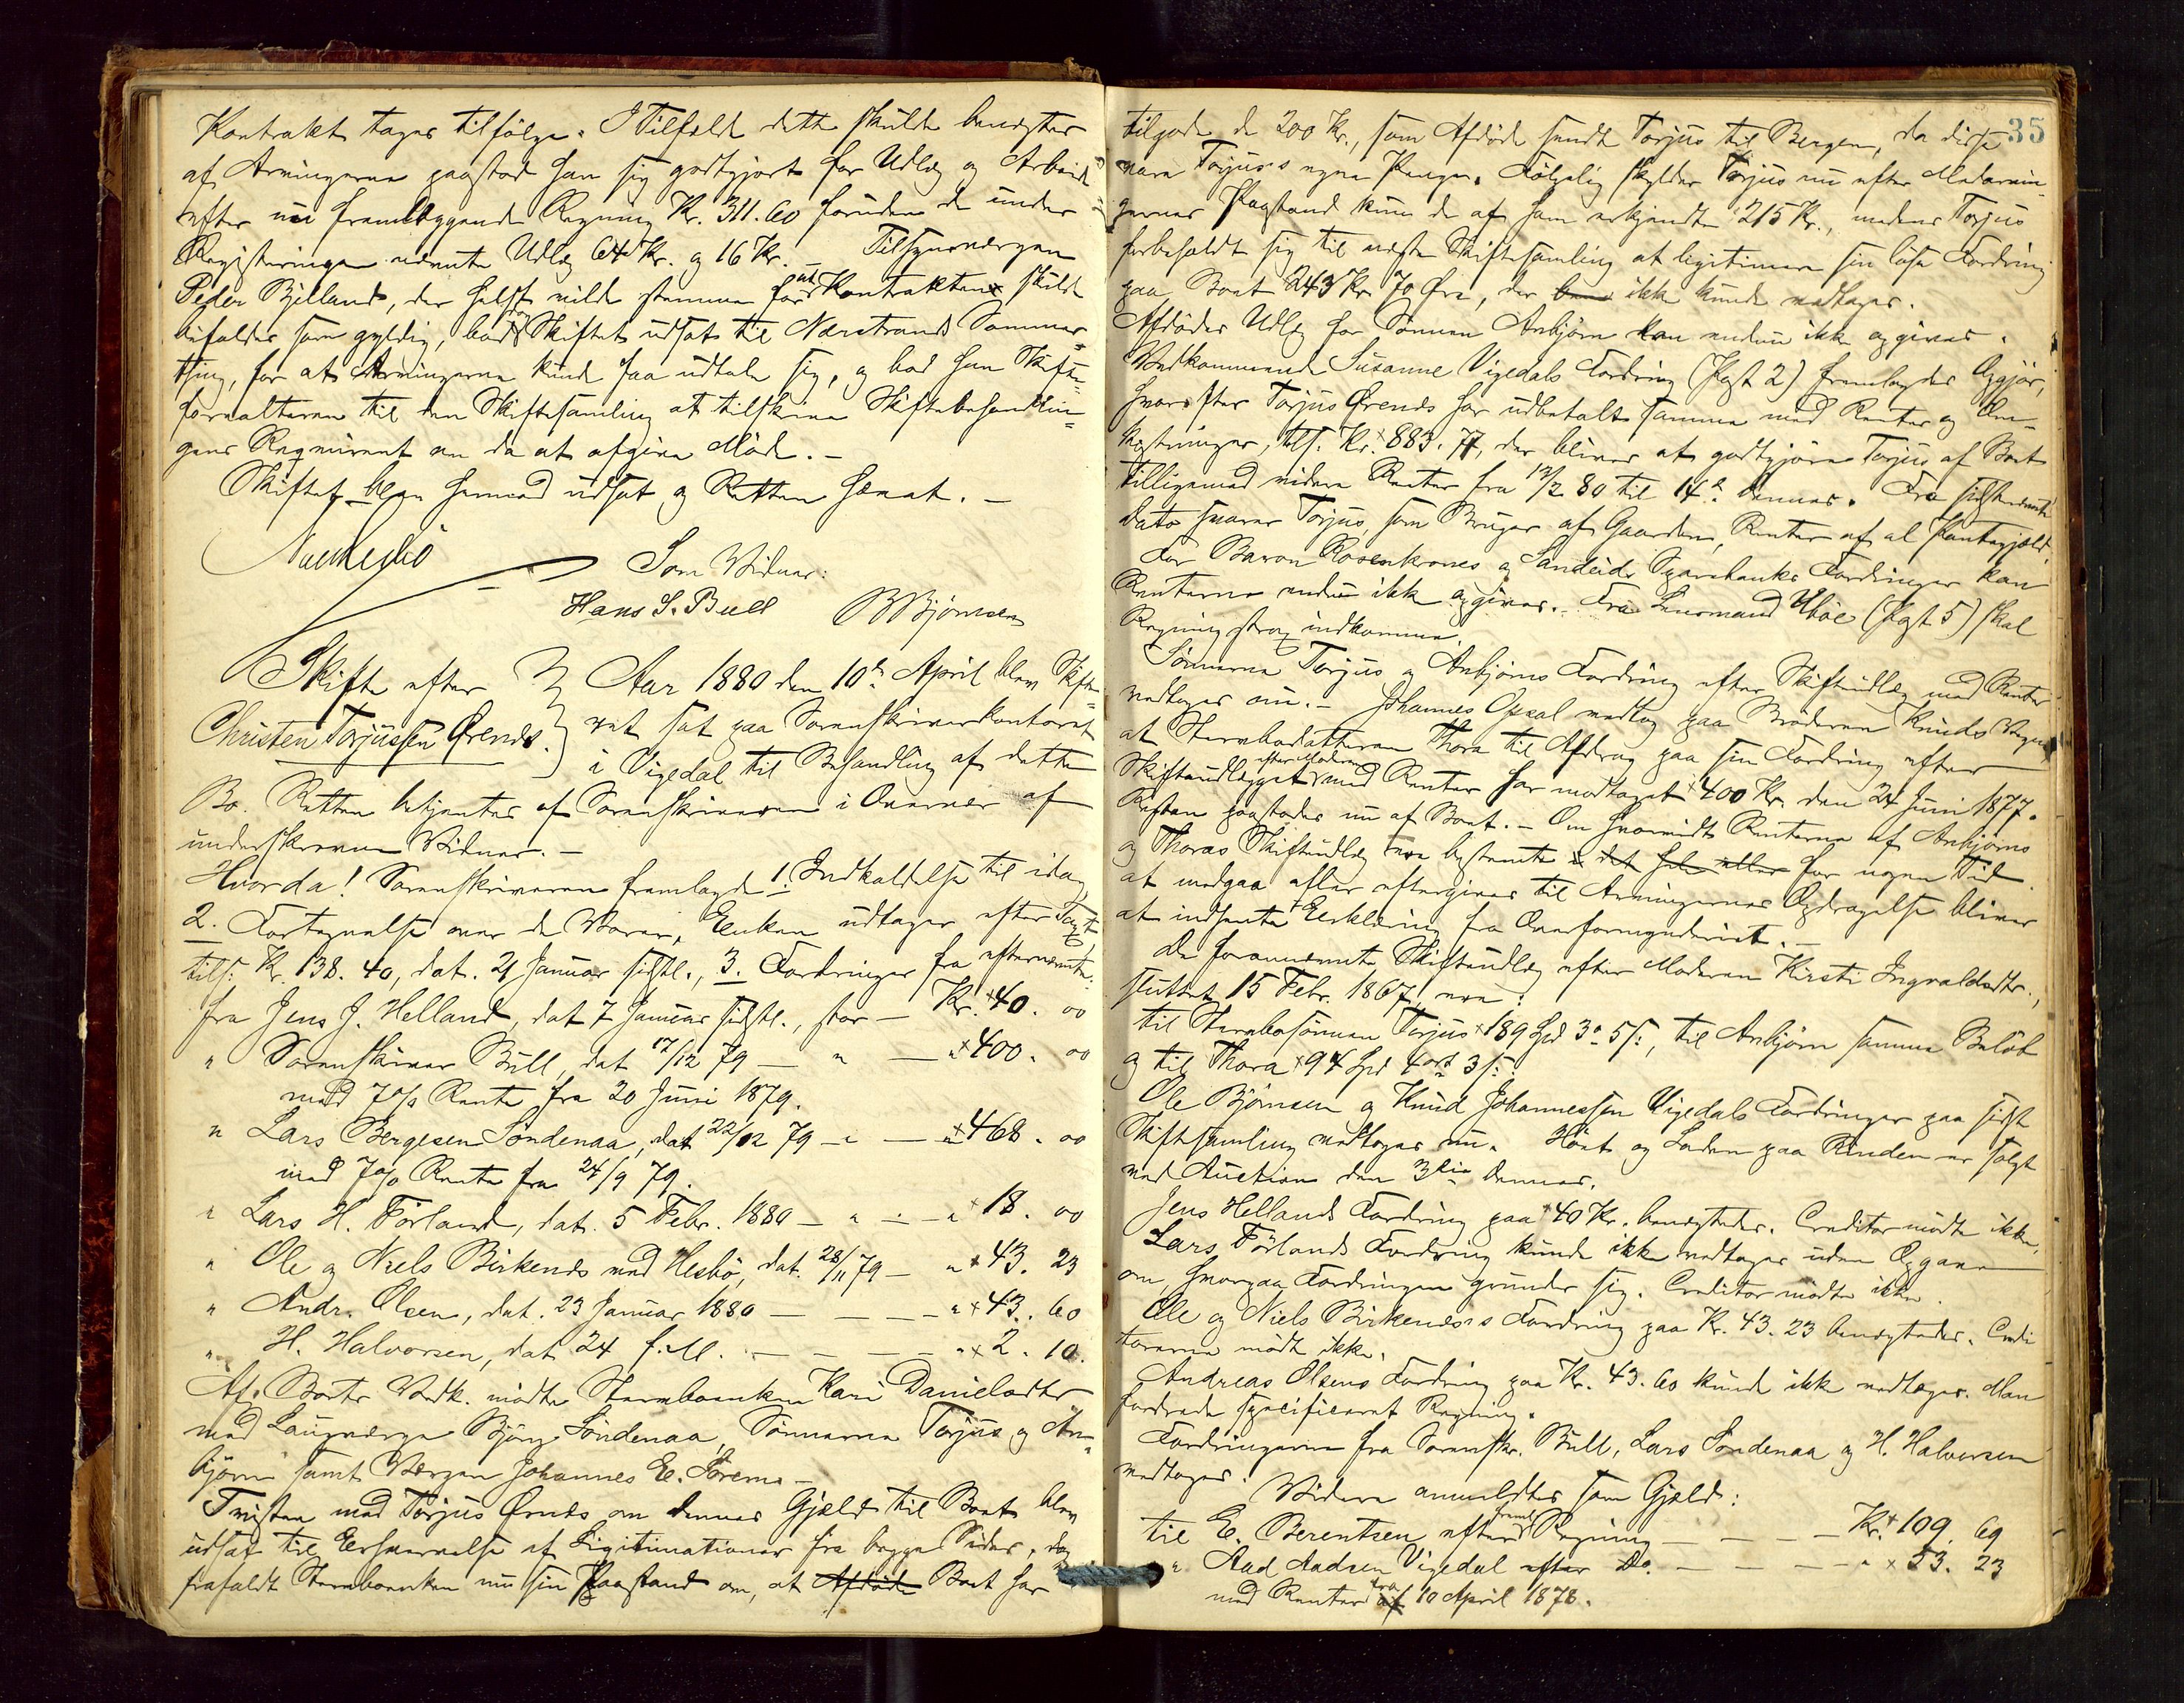 Kontrakt tages tilfölge. I Tilfæld dette skulde benegtes
af Arvingerne paastod han sig godtgjort for Udlæg og Arbeide
efter nu fremlæggende Regning Kr. 311.60 foruden de under
Registeringen nævnte Udlæg 64 Kr. og 16 Kr. – Tilsynsværgen
Peder Bjelland, der helst vilde stemme for at Kontrakten skulde
befaldes som gyldig, bad Skiftet udsat til Nærstrands Sommer=
thing, for at Arvingerne kunde faa udtale sig, og bad han Skifte=
forvalteren til den Skiftesamling at tilskrive Skiftebehandlin=
gens Reqvirent om da at afgive Möde. –
Skiftet blev hermed udsat og Retten hævet. –
Som Vidner:
Hans S. Bull B Björnsen
Skifte efter
Christen Torjussen Ørends.
Aar 1880 den 10de April blev Skifte=
ret sat paa Sorenskriverkontoret
i Vigedal til Behandling af dette
Bo. Retten betjentes af Sorenskriveren i Overvær af
underskrevne Vidner. –
Hvorda! Sorenskriveren fremlagde 1. Indkaldelse til idag,
2. Fortegnelse over de Varer, Enken udtager efter Taxt,
tils: Kr. 138.40, dat. 21 Januar sidstl., 3. Fordringer fra efternævnte:
fra Jens J. Helland, dat 7 Januar sidstl., stor – Kr. 40. 00
" Sorenskriver Bull, dat 17/12 79 — " — " 400. 00
med 7 o/o Rente fra 20 Juni 1879.
" Lars Bergesen Söndenaa, dat 22/12 79 – " — " 468. 00
med 7 o/o Rente fra 24/9 79.
" Lars H. Förland, dat. 5 Febr. 1880 – " – " 18. 00
" Ole og Niels Birkenes ved Hesbö, dat. 28/11 79 – " 43. 23
" Andr. Olsen, dat. 23 Januar 1880 — — — " 43. 60
" H. Halvorsen, dat 24 f. M. — — — " 2. 10.
Af Boets Vedk. mödte Stervboenken Kari Danielsdtr
med Laugværge Björn Söndenaa, Sönnerne Torjus og An=
björn samt Værgen Johannes E. Sörem. –
Tvisten med Torjus Ørends om dennes Gjæld til Boet blev
udsat til Erhvervelse af Legitimationer fra begge Sider, dog
frafaldt Stervboenken nu sin Paastand om, at Afdöde Boet har
35
tilgode de 200 Kr., som Afdöde sendte Torjus til Bergen, da disse
vare Torjus's egne Penge. Fölgelig skylder Torjus nu efter Medarvin=
gernes Paastand kun de af ham erkjendte 215 Kr., medens Torjus
forbeholdt sig til næste Skiftesamling at legitimere sin löse Fordring
paa Boet 243 Kr 70 Øre, der ikke kunde vedtages.
Afdödes Udlæg for Sönnen Anbjörn kan endnu ikke opgives.
Vedkommende Susanne Vigedals Fordring (Post 2) fremlagdes Opgjör,
hvorefter Torjus Ørends har udbetalt samme med Renter og Om=
kostninger, tils. Kr. 883.77, der bliver at godtgjöre Torjus af Boet
tilligemed videre Renter fra 12/2 80 til 14de dennes. Fra sidstnævnte
dato svarer Torjus, som Bruger af Gaarden, Renter af al Pantegjæld.
For Baron Rosenkrones og Sandeids Sparebanks Fordringer kan
Renterne endnu ikke opgives. – Fra Lensmand Ubøe (Post 5) skal
Regning strax indkomme.
Sönnerne Torjus og Anbjörns Fordring efter Skifteudlæg med Renter
vedtages nu. – Johannes Opsal vedtog paa Broderen Knuds Vegne
at Stervbodatteren Thora til Afdrag paa sin Fordring efter
Skifteudlægget efter Moderen med Renter har modtaget 400 Kr. den 24 Juni 1877.
Resten paastodes nu af Boet. – Om hvorvidt Renterne af Anbjörns
og Thoras Skifteudlæg ere bestemte i det hele eller for nogen Tid
at medgaa eller eftergives til Arvingernes Opdragelse bliver
at indhente Erklæring fra Overformynderiet. –
De forannævnte Skifteudlæg efter Moderen Kirsti Ingvaldsdtr.,
sluttet 15 Febr. 1867, ere:
til Stervbosönnen Torjus 189 Spd 3 5 s:, til Anbjörn samme Belöb
og til Thora 94 Spd 4 ort 3 s:
Ole Björnsen og Knud Johannessen Vigedals Fordringer paa sidste
Skiftesamling vedtages nu. Höet og Laden paa Rinden er solgt
ved Auction den 3die dennes.
Jens Hellands Fordring paa 40 Kr. benegtedes. Creditor mödte ikke.
Lars Förlands Fordring kunde ikke vedtages uden Opgave
om, hvorpaa Fordringen grunder sig. Creditor mödte ikke.
Ole og Niels Birkenes's Fordring paa Kr. 43.23 benegtedes. Credi
torerne mödte ikke.
Andreas Olsens Fordring paa Kr. 43.60 kunde ikke vedtages. Man
fordrede specificeret Regning.
Fordringerne fra Sorenskr. Bull, Lars Söndenaa og H. Halvorsen
vedtoges.
Videre anmeldtes som Gjæld:
til E. Berentsen efter freml. Regning — — — Kr. 109. 69
" Aad Aadsen Vigedal efter Do. — — — " 53. 23
med Renter fra 10 April 1878.